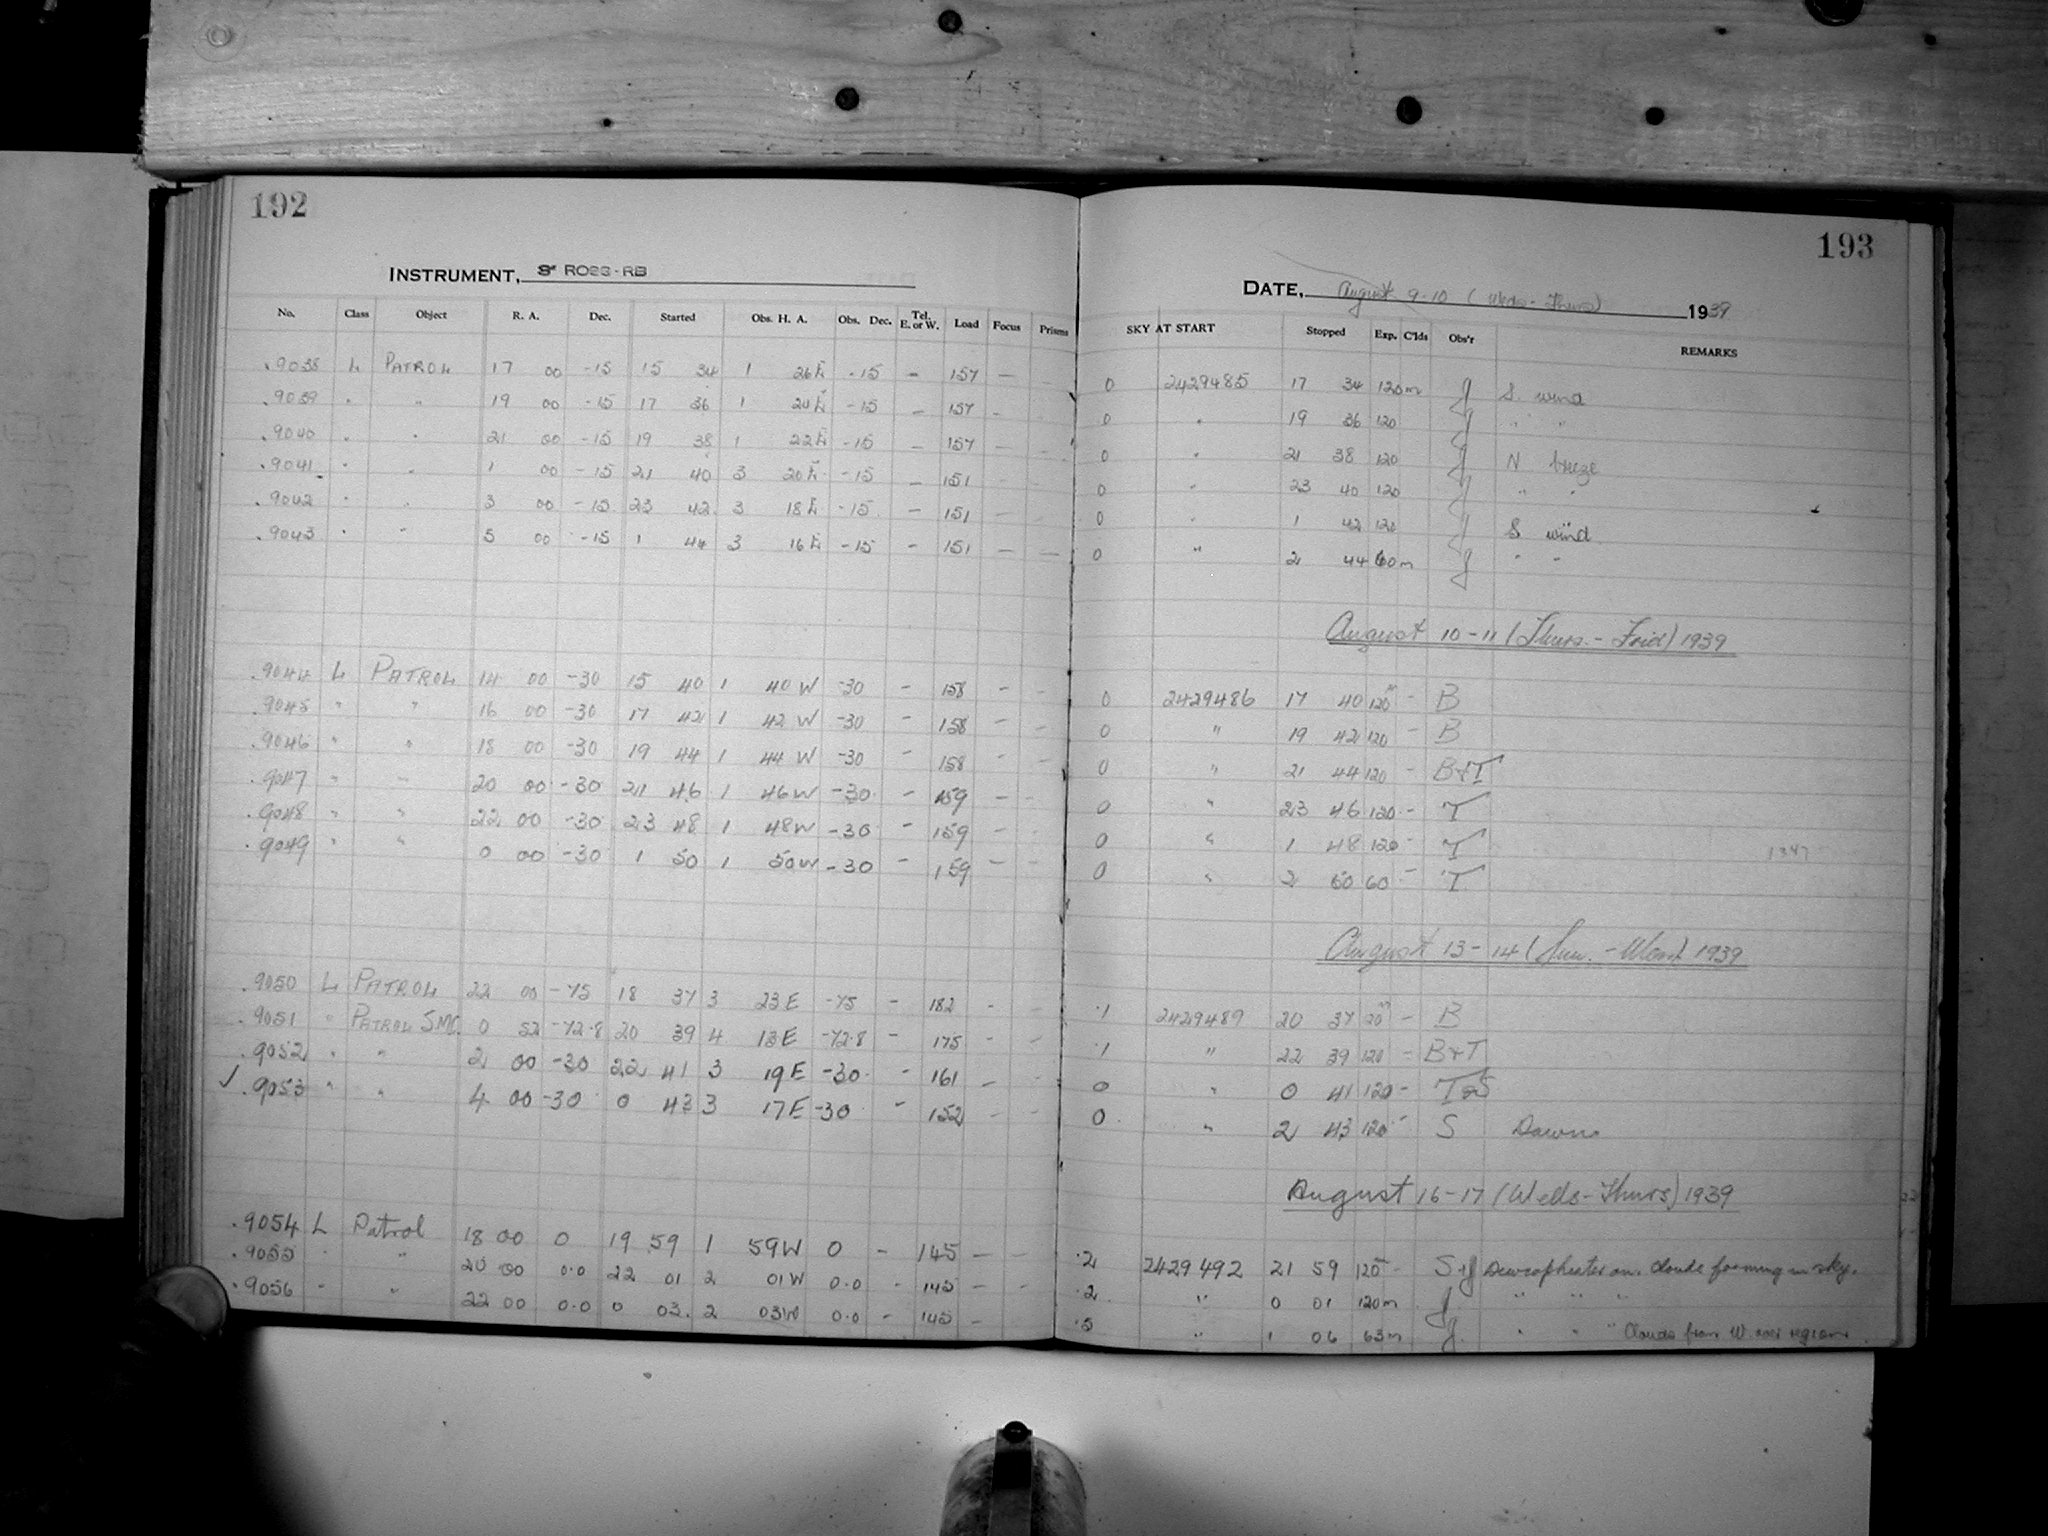 192
INSTRUMENT, 3" ROSS-RB
No. Class Object R. A. Dec. Started Obs. H. A. Obs. Dec. Tel. E. or W. Load Focus Prisms
.9038 L PATROL 17 00 -15 15 34 1 26E -15 - 157 -
.9039 " " 19 00 -15 17 36 1 24E -15 - 157 -
.9040 " " 21 00 -15 19 38 1 22E -15 - 157
.9041 " " 1 00 -15 21 40 3 20E -15 - 151
.9042 " " 3 00 -15 23 42 3 18E -15 - 151 -
.9043 " " 5 00 -15 1 44 3 16E -15 - 151 - -
.9044 L PATROL 14 00 -30 15 40 1 40W -30 - 158 - -
.9045 " " 16 00 -30 17 42 1 42W -30 - 158 - -
.9046 " " 18 00 -30 19 44 1 44W -30 - 158 - -
.9047 " " 20 00 -30 21 46 1 46W -30 - 159 - -
.9048 " " 22 00 -30 23 48 1 48W -30 - 159 - -
.9049 " " 0 00 -30 1 50 1 50W -30 - 159 - -
.9050 L PATROL 22 00 -75 18 37 3 23E -75 - 182 - -
.9051 " PATROL SMC. 0 52 -72.8 20 39 4 13E -72.8 - 175 - -
.9052 " " 2 00 -30 22 41 3 19E -30 - 161 - -
✓ .9053 " " 4 00 -30 0 43 3 17E -30 - 152 - -
.9054 L Patrol 18 00 0 19 59 1 59W 0 - 145 - -
.9055 " " 20 00 0.0 22 01 2 01W 0.0 - 145 -
.9056 " " 22 00 0.0 0 03 2 03W 0.0 - 145 -
193
DATE, August 9-10 (Weds-Thurs) 1939
SKY AT START Stopped Exp. C'lds Obs'r REMARKS
0 2429485 17 34 120m J S. wind
0 " 19 36 120 J " "
0 " 21 38 120 J N breeze
0 " 23 40 120 J " "
0 " 1 42 120 J S wind
0 " 2 44 60m J " "
August 10-11 (Thurs.-Frid) 1939
0 2429486 17 40 120m - B
0 " 19 42 120 - B
0 " 21 44 120 - B&T
0 " 23 46 120 - T
0 " 1 48 120 - T
0 " 2 50 60 - T
August 13-14 (Sun.-Mon) 1939
.1 2429489 20 37 120m - B
.1 " 22 39 120 - B&T
0 " 0 41 120 - T&S
0 " 2 43 120 - S Dawn
August 16-17 (Weds-Thurs) 1939
.2 2429492 21 59 120 - S&J Dewcapheater on. Clouds forming in sky.
.2 " 0 01 120m J " " "
.5 " 1 06 63m J " " " Clouds from W over region.